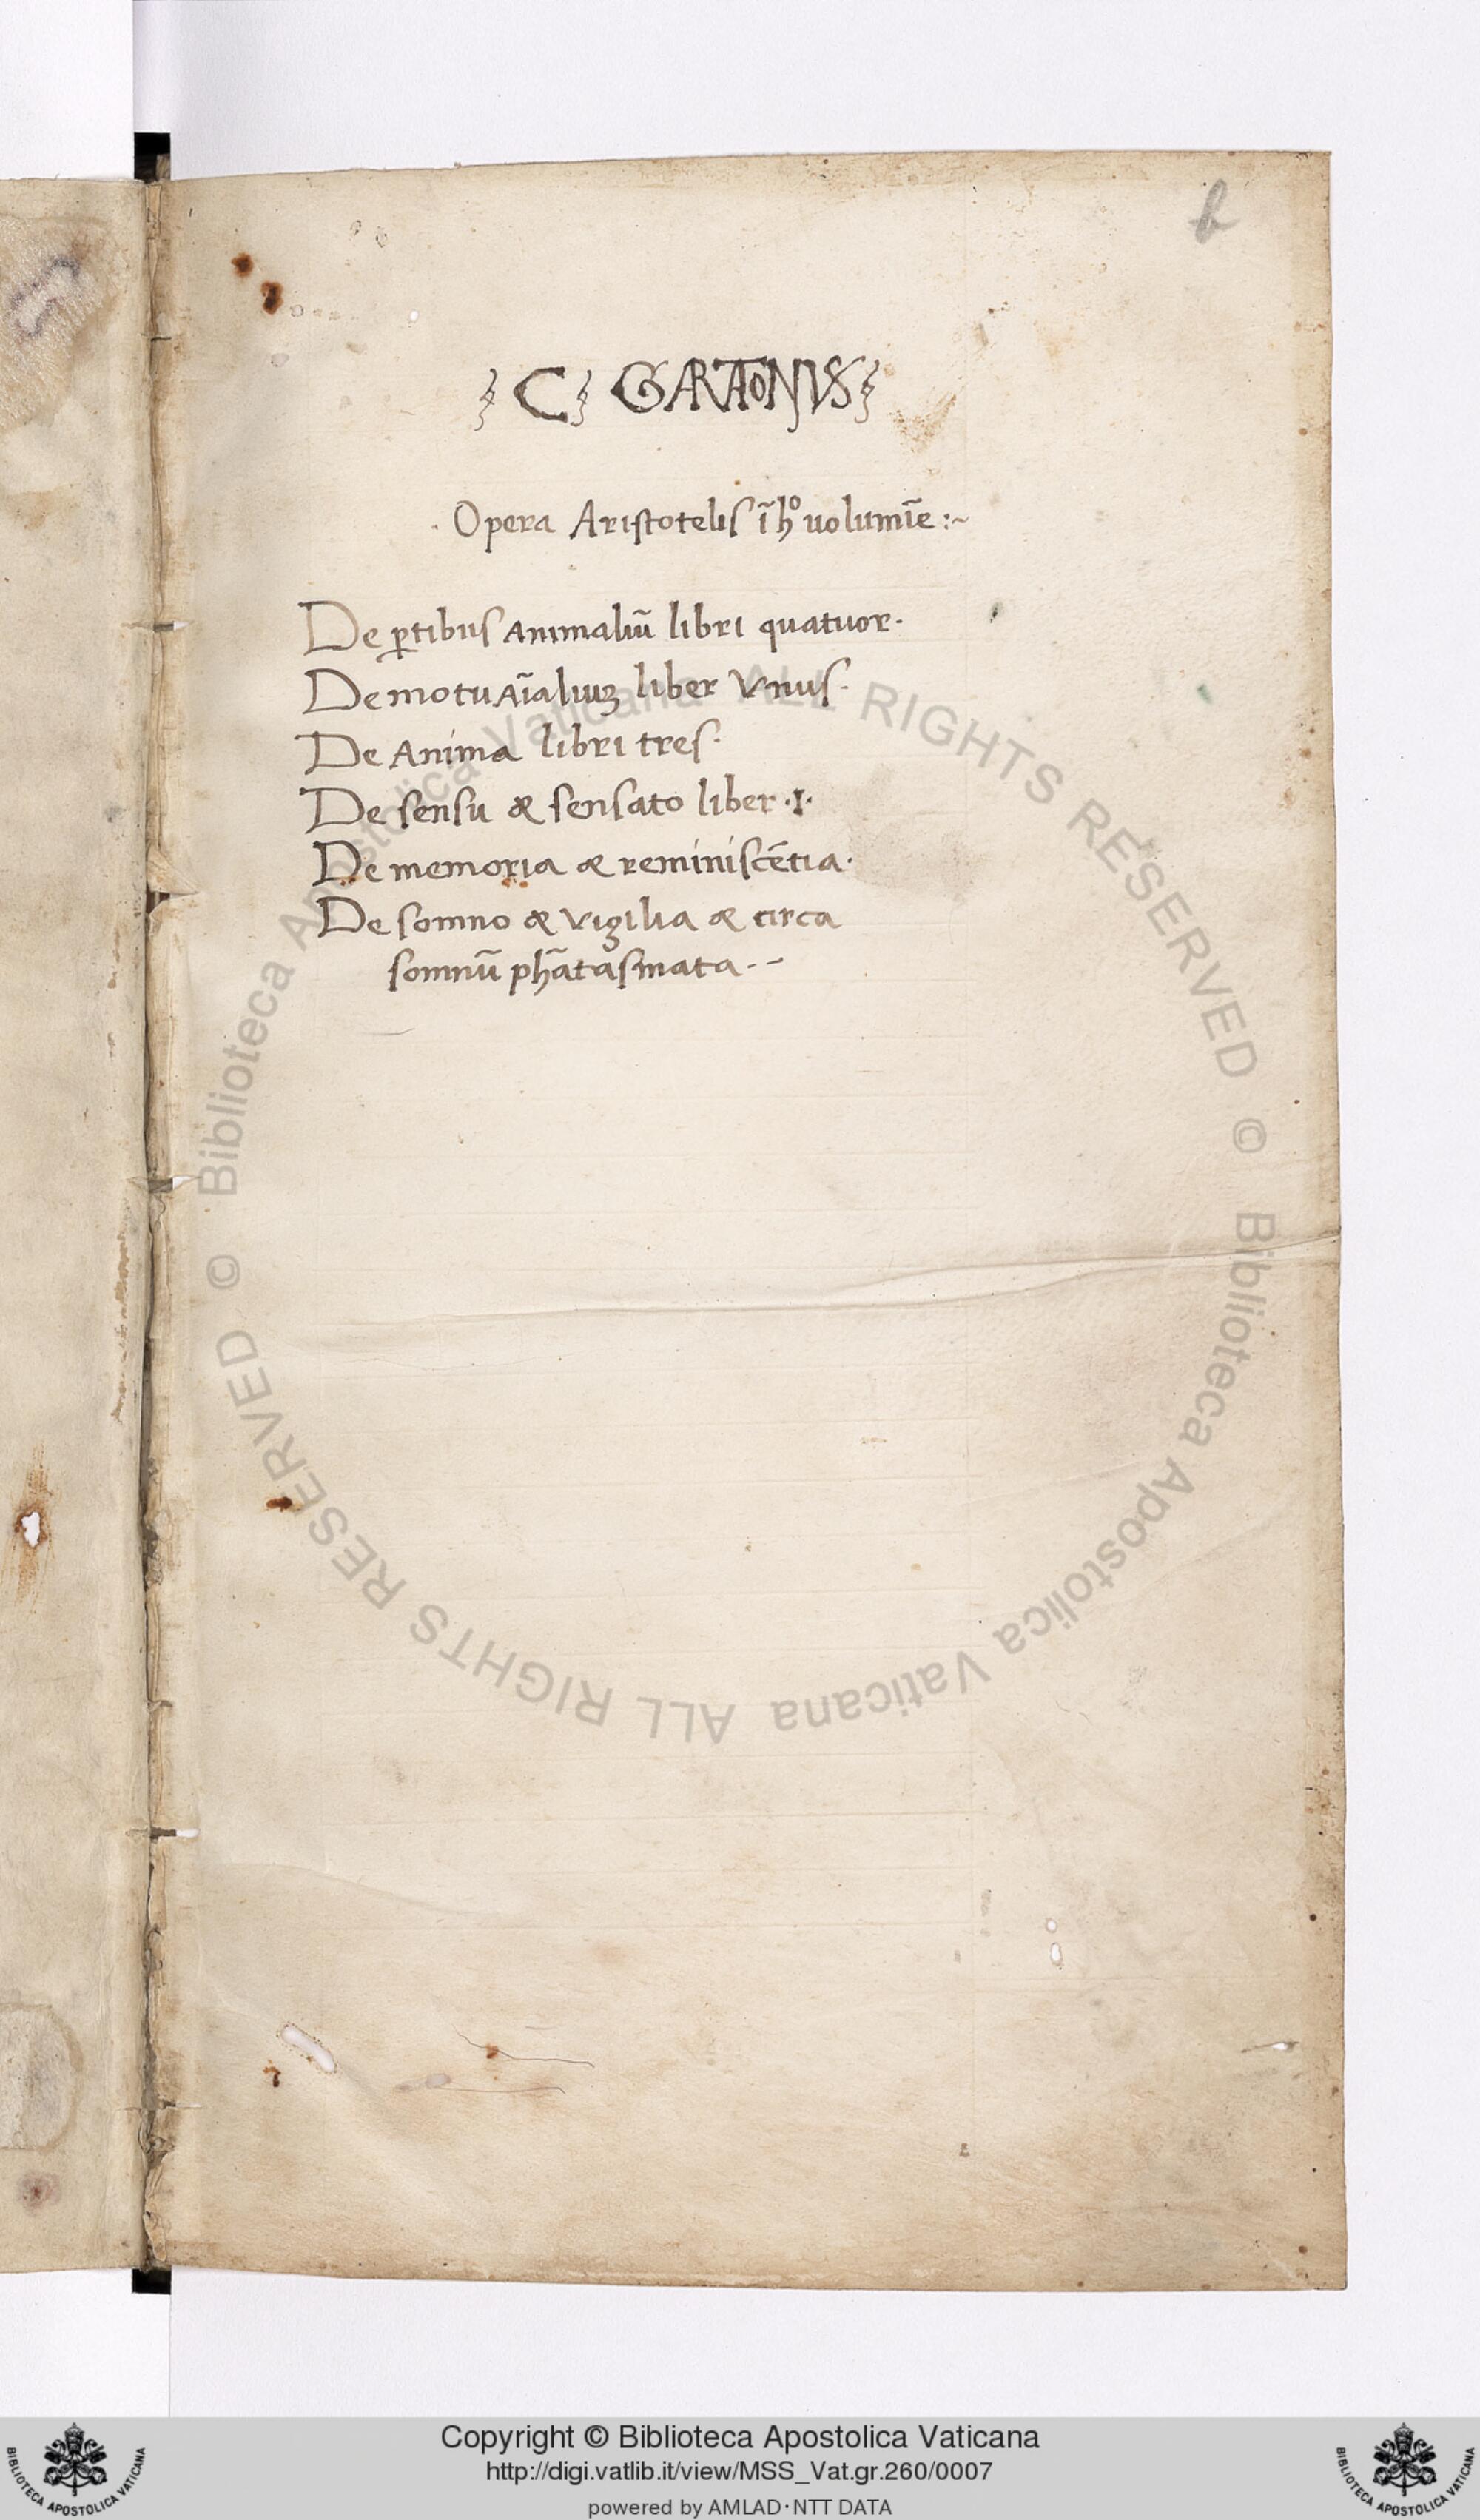 b
C GARATONIVS
Opera Aristotelis ĩ hº uolumĩe :~
De ꝑtibus animaliũ libri quatuor.
De motu aĩaliuꝫ liber Vnus.
De Anima libri tres.
De sensu & sensato liber .I.
De memoria & reminiscẽtia.
De somno & vigilia & circa
somnũ phãtasmata.-
© Biblioteca Apostolica Vaticana ALL RIGHTS RESERVED
© Biblioteca Apostolica Vaticana ALL RIGHTS RESERVED
Copyright © Biblioteca Apostolica Vaticana
http://digi.vatlib.it/view/MSS_Vat.gr.260/0007
powered by AMLAD·NTT DATA
BIBLIOTECA APOSTOLICA VATICANA
BIBLIOTECA APOSTOLICA VATICANA